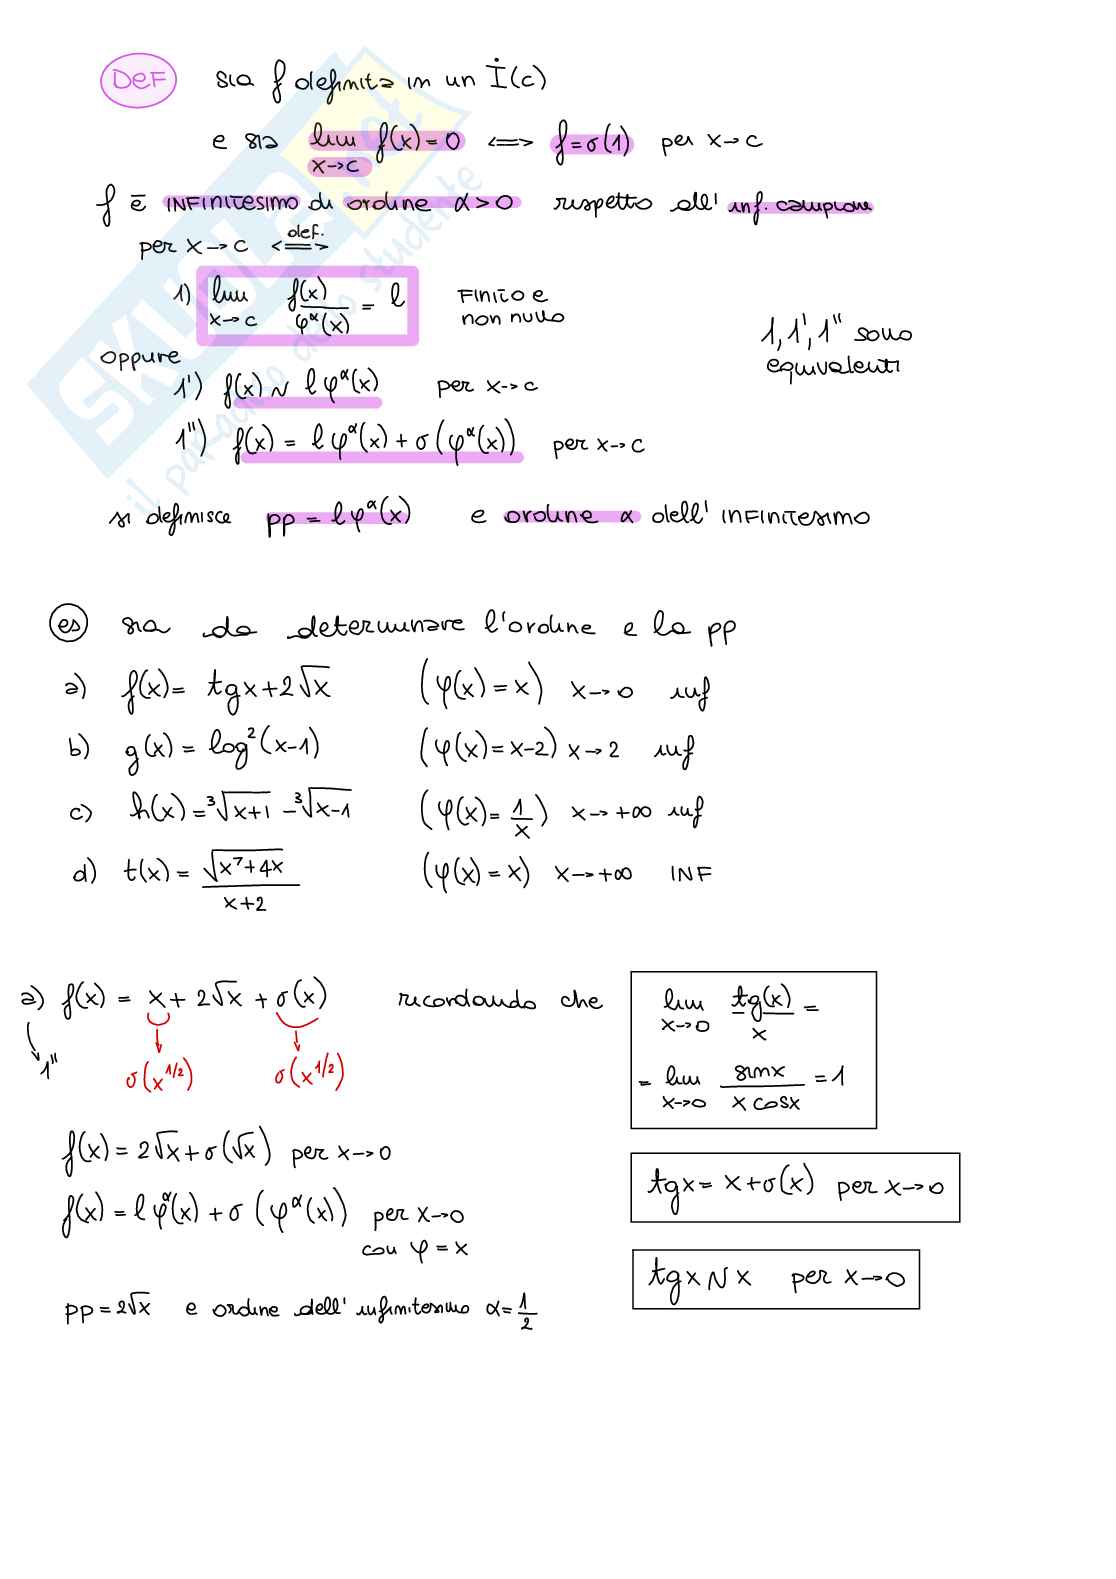 DEF sia f definita in un İ(c)
e sia lim f(x) = 0 <=> f = σ(1) per x→c
x→c
f è INFINITESIMO di ordine α>0 rispetto all' inf. campione
per x→c <=> def.
1) lim f(x)/φ^α(x) = l FINITO e
x→c non nullo
1, 1', 1'' sono
equivalenti
oppure
1') f(x) ~ l φ^α(x) per x→c
1'') f(x) = l φ^α(x) + σ(φ^α(x)) per x→c
si definisce pp = l φ^α(x) e ordine α dell' INFINITESIMO
es sia da determinare l'ordine e la pp
a) f(x) = tgx + 2√x (φ(x) = x) x→0 inf
b) g(x) = log²(x-1) (φ(x) = x-2) x→2 inf
c) h(x) = ³√x+1 - ³√x-1 (φ(x) = 1/x) x→+∞ inf
d) t(x) = √x⁷+4x / x+2 (φ(x) = x) x→+∞ INF
a) f(x) = x + 2√x + σ(x) ricordando che
1'' σ(x^1/2) σ(x^1/2)
lim tg(x)/x =
x→0
= lim sinx / x cosx = 1
x→0
f(x) = 2√x + σ(√x) per x→0
tgx = x + σ(x) per x→0
f(x) = l φ^α(x) + σ(φ^α(x)) per x→0
con φ = x
tgx ~ x per x→0
pp = 2√x e ordine dell' infinitesimo α = 1/2
SKUOLA.net
il paradiso dello studente